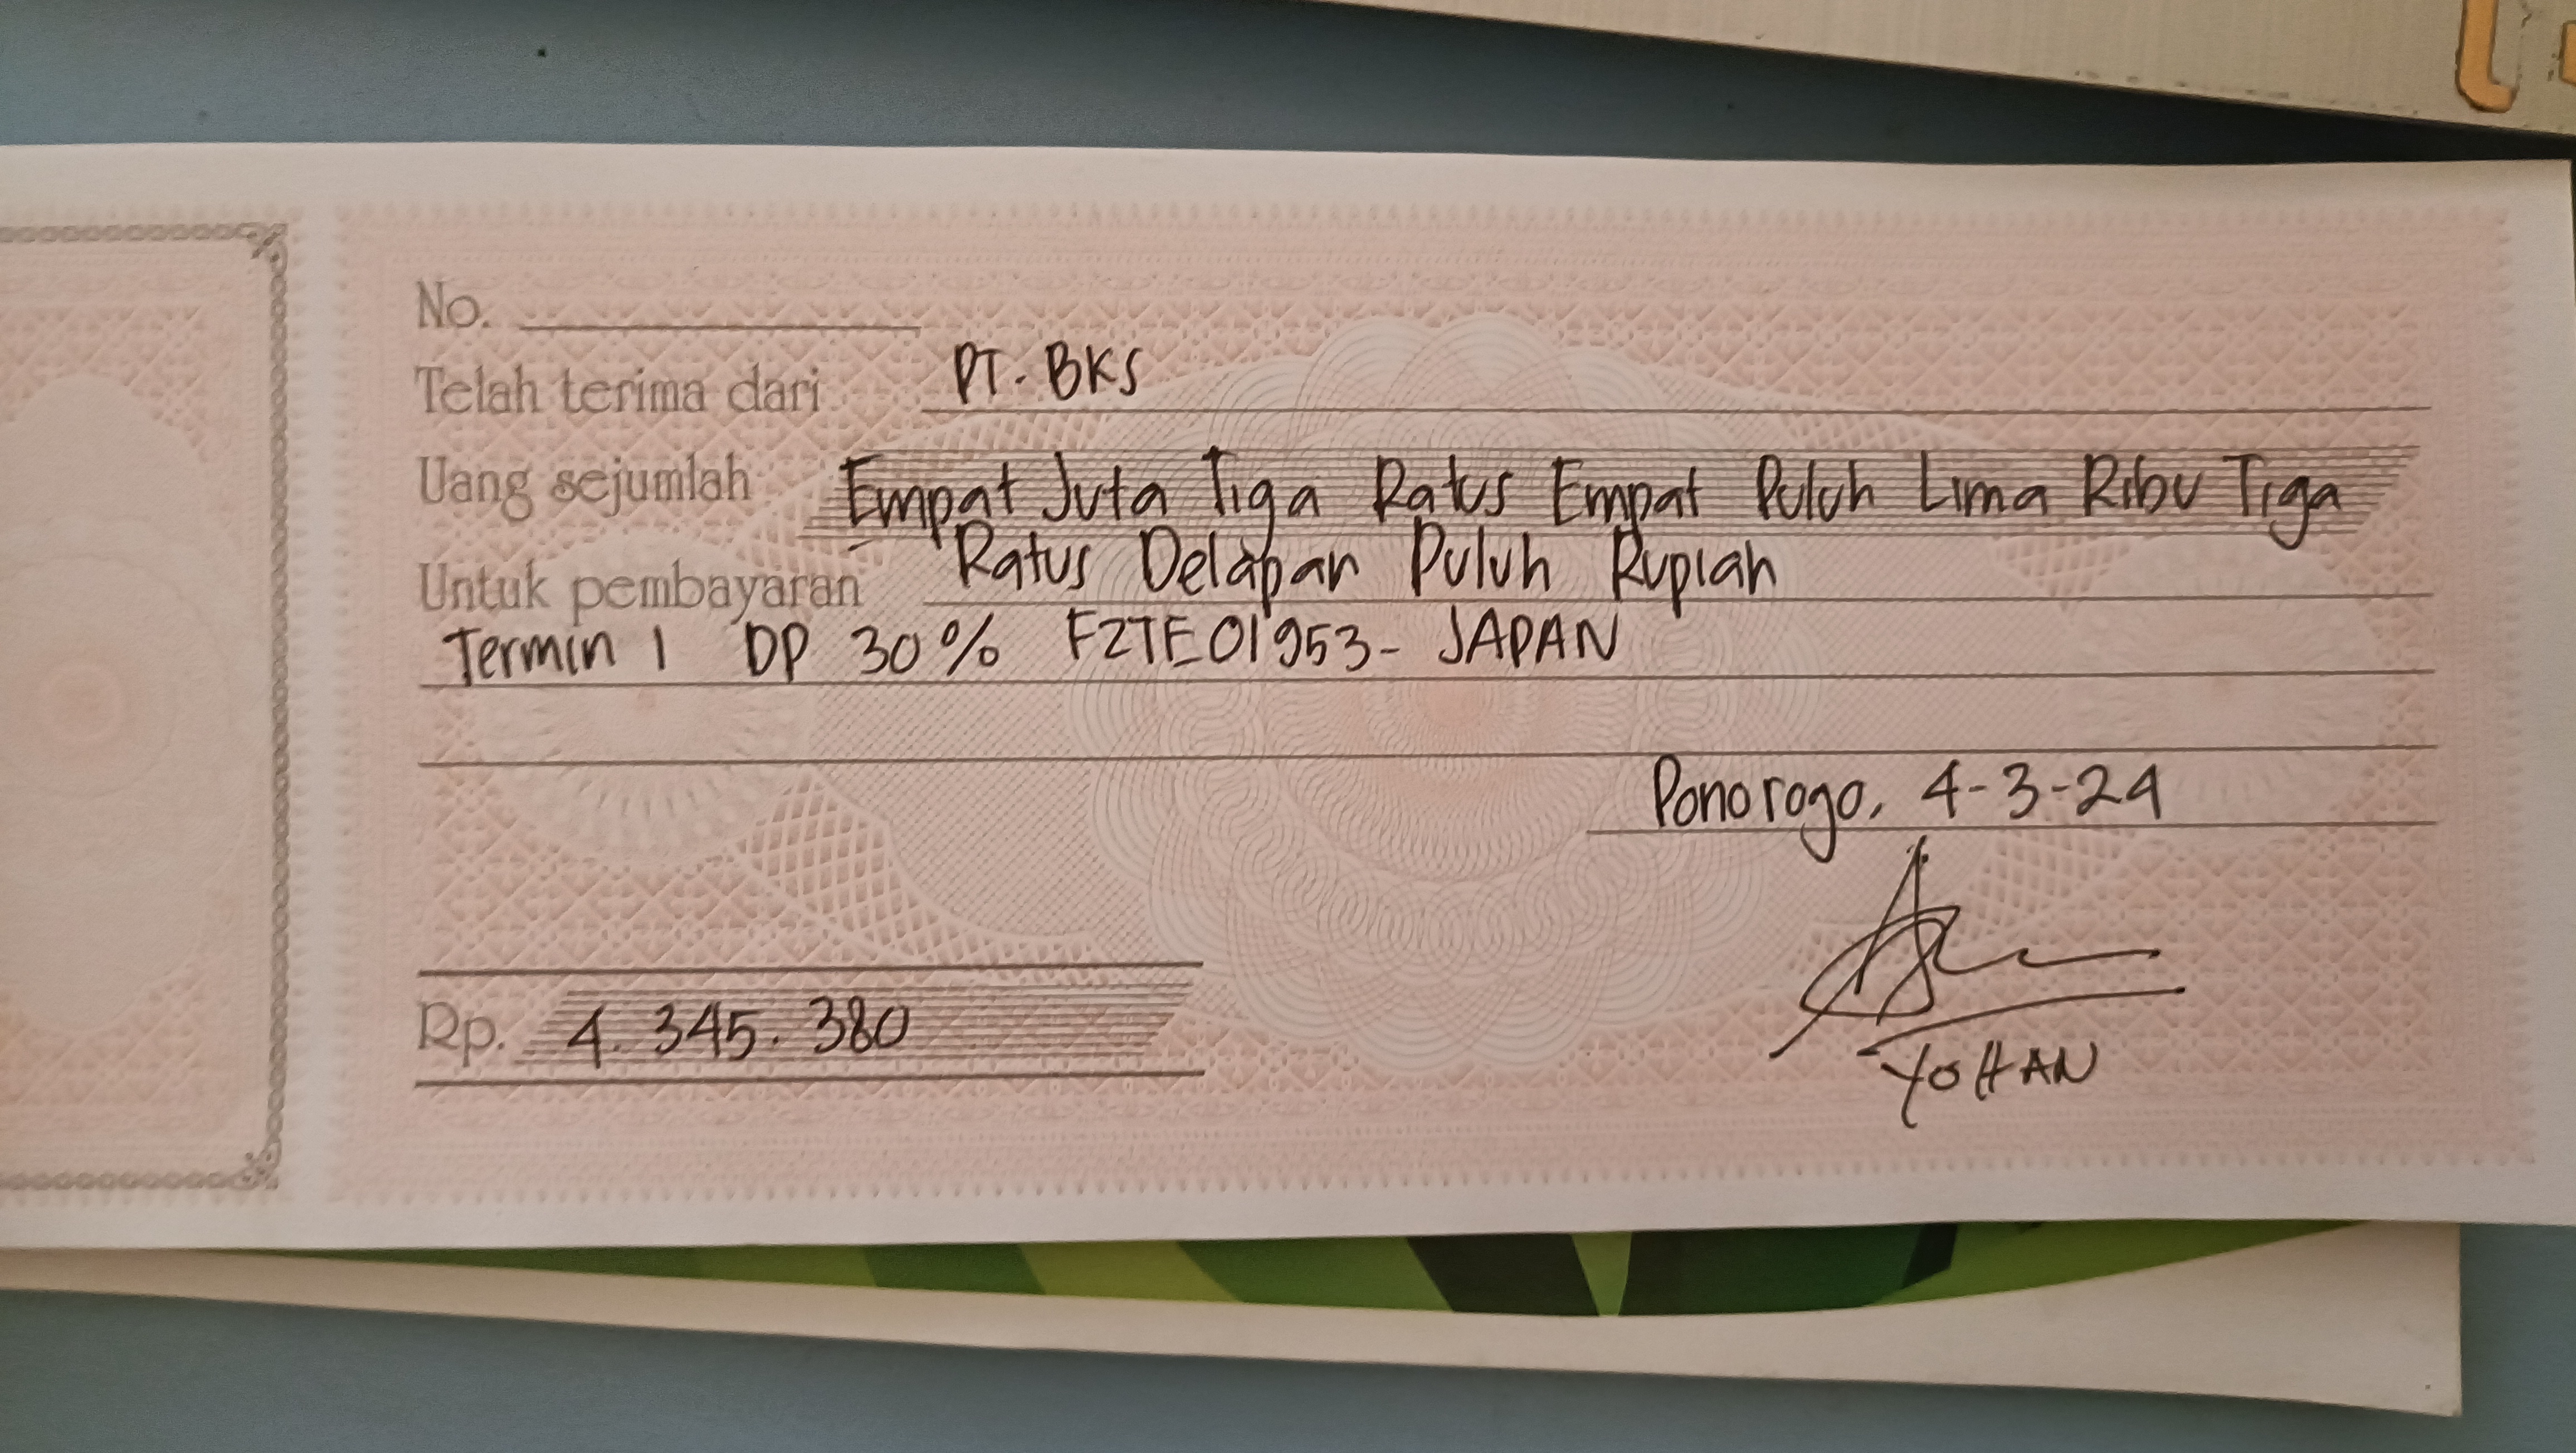 No.
Telah terima dari PT. BKS
Uang sejumlah Empat Juta Tiga Ratus Empat Puluh Lima Ribu Tiga
Ratus Delapan Puluh Rupiah
Untuk pembayaran
Termin 1 DP 30% F2TE01953- JAPAN
Ponorogo, 4-3-24
Rp. 4.345.380
YOHAN